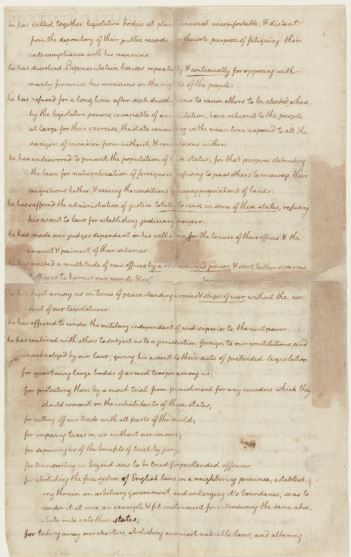 he has called together legislative bodies at places unusual, uncomfortable, & distant
from the depository of their public records for the sole purpose of fatiguing them
into compliance with his measures:
he has dissolved Representative houses repeatedly & continually for opposing with
manly firmness his invasions on the rights of the people:
he has refused for a long time after such dissolutions to cause others to be elected where
by the legislative powers, incapable of annihilation, have returned to the people
at large for their exercise, the state remaining in the mean time exposed to all the
dangers of invasion from without & convulsions within:
he has endeavored to prevent the population of these states; for that purpose obstructing
the laws for naturalization of foreigners, refusing to pass others to encourage their
migrations hither, & raising the conditions of new appropriations of lands:
he has suffered the administration of justice totally to cease in some of these states, refusing
his assent to laws for establishing judiciary powers:
he has made our judges dependant on his will alone, for the tenure of their offices & the
amount & paiment of their salaries:
he has erected a multitude of new offices by a self-assumed power, & sent hither swarms
of officers to harrass our people &
he has kept among us in times of peace standing armies & ships of war without the con
sent of our legislatures:
he has affected to render the military independent of and superior to the civil power:
he has combined with others to subject us to a jurisdiction foreign to our constitutions and
unacknoleged by our laws; giving his assent to their acts of pretended legislation
for quartering large bodies of armed troops among us;
for protecting them by a mock trial from punishment for any murders which they
should commit on the inhabitants of these states;
for cutting off our trade with all parts of the world;
for imposing taxes on us without our consent;
for depriving us of the benefits of trial by jury;
for transporting us beyond seas to be tried for pretended offences
for abolishing the free system of English laws in a neighboring province, establish
ing therein an arbitrary government, and enlarging it's boundaries, so as to
render it at once an example & fit instrument for introducing the same abso
lute rule into these states;
for taking away our charters, abolishing our most valuable laws, and altering